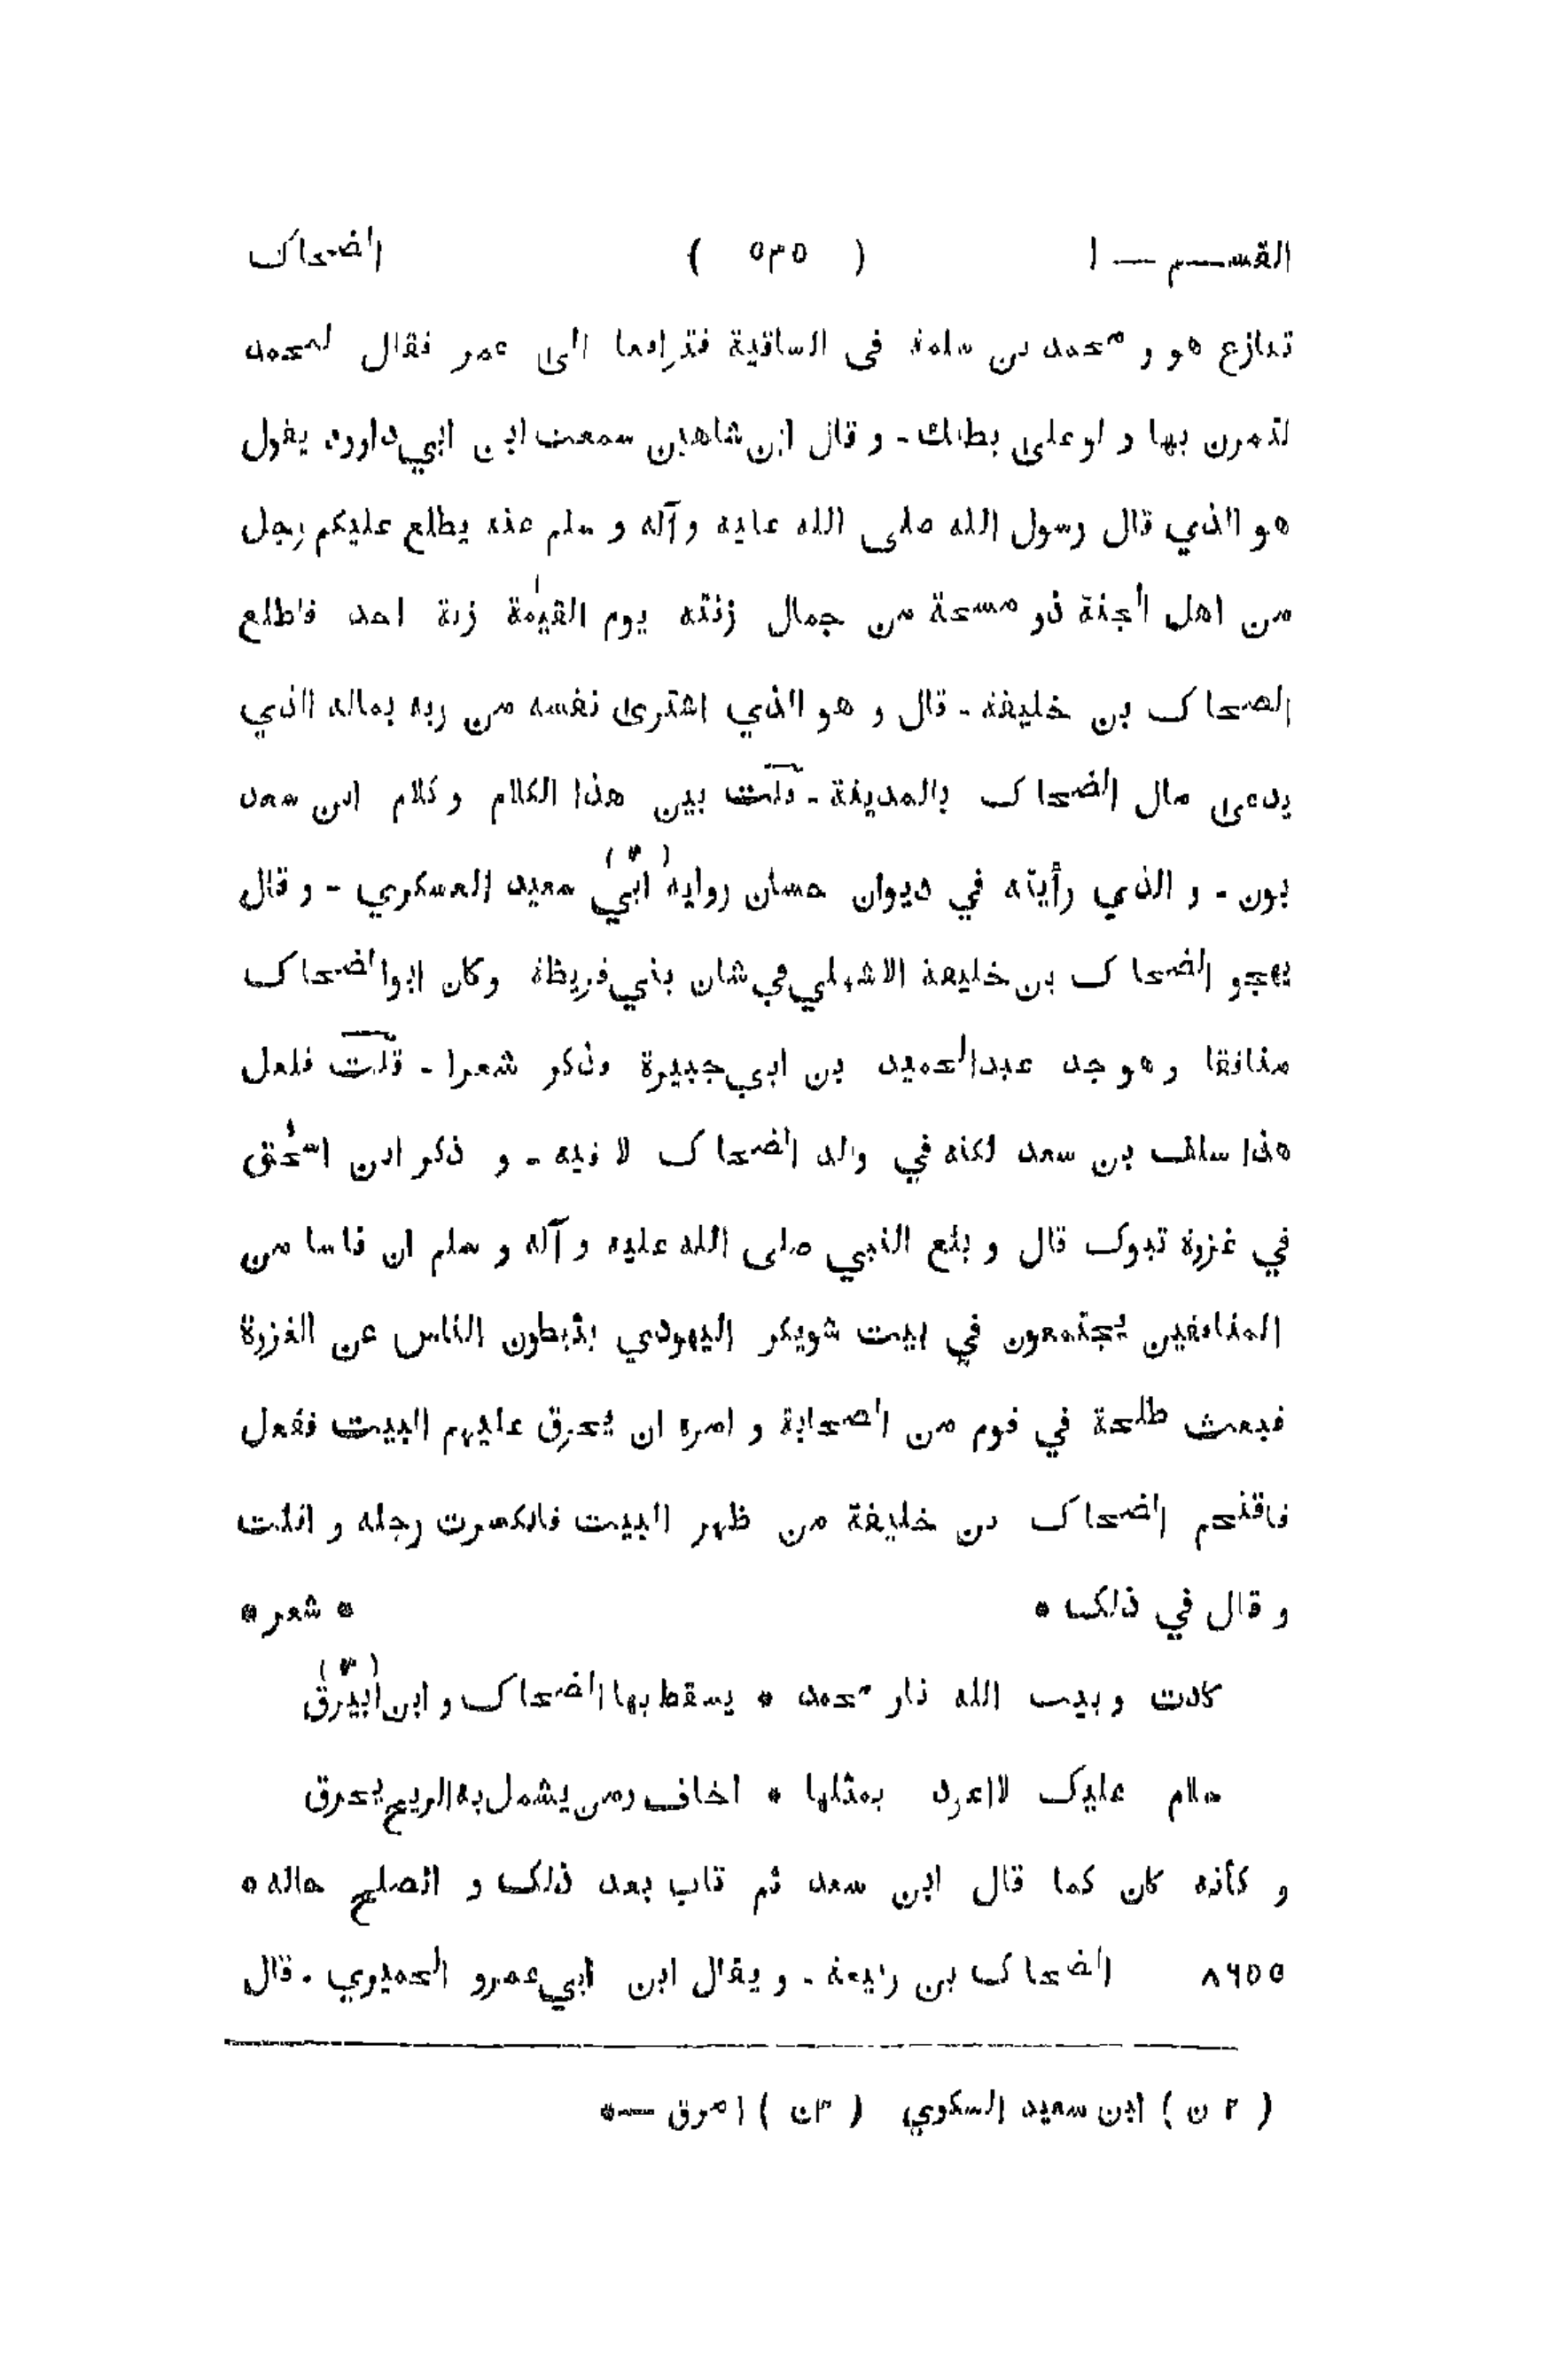 القسـم — ١ ( ٥٣٥ ) الضحاك
تنازع هو و محمد بن سلمة فى الساقية فترافعا الى عمر فقال لمحمد
لتمرن بها و لو على بطنك - و قال ابن شاهين سمعت ابن ابي داورد يقول
هو الذي قال رسول الله صلى الله عليه و آله و سلم عنه يطلع عليكم رجل
من اهل الجنة ذو مسحة من جمال زنته يوم القيٰمة زنة احد فاطلع
الضحاك بن خليفة - قال و هو الذي اشترى نفسه من ربه بماله الذي
يدعى مال الضحاك بالمدينة - قلت بين هذا الكلام و كلام ابن سعد
بون - و الذي رأيته في ديوان حسان رواية ابي (٢) سعيد العسكري - و قال
يهجو الضحاك بن خليفة الاشهلي في شان بني قريظة و كان ابو الضحاك
منافقا و هو جد عبد الحميد بن ابي جبيرة و ذكر شعرا - قلت فلعل
هذا سلف بن سعد لكنه في والد الضحاك لا فيه - و ذكر ابن اسحٰق
في غزوة تبوك قال و بلغ النبي صلى الله عليه و آله و سلم ان ناسا من
المنافقين يجتمعون في بيت شويكر اليهودي يثبطون الناس عن الغزوة
فبعث طلحة في قوم من الصحابة و امره ان يحرق عليهم البيت ففعل
فاقتحم الضحاك بن خليفة من ظهر البيت فانكسرت رجله و افلت
و قال في ذلك * * شعر *
كادت و بيت الله نار محمد * يسقط بها الضحاك و ابن ابيرق (٣)
سلام عليك لا اعود بمثلها * اخاف و من يشمل به الريح يحرق
و كأنه كان كما قال ابن سعد ثم تاب بعد ذلك و انصلح حاله *
٨٦٥٥ الضحاك بن ربيعة - و يقال ابن ابي عمرو الحميري - قال
( ٢ ن ) ابن سعيد السكوي ( ٣ ن ) امرق —*